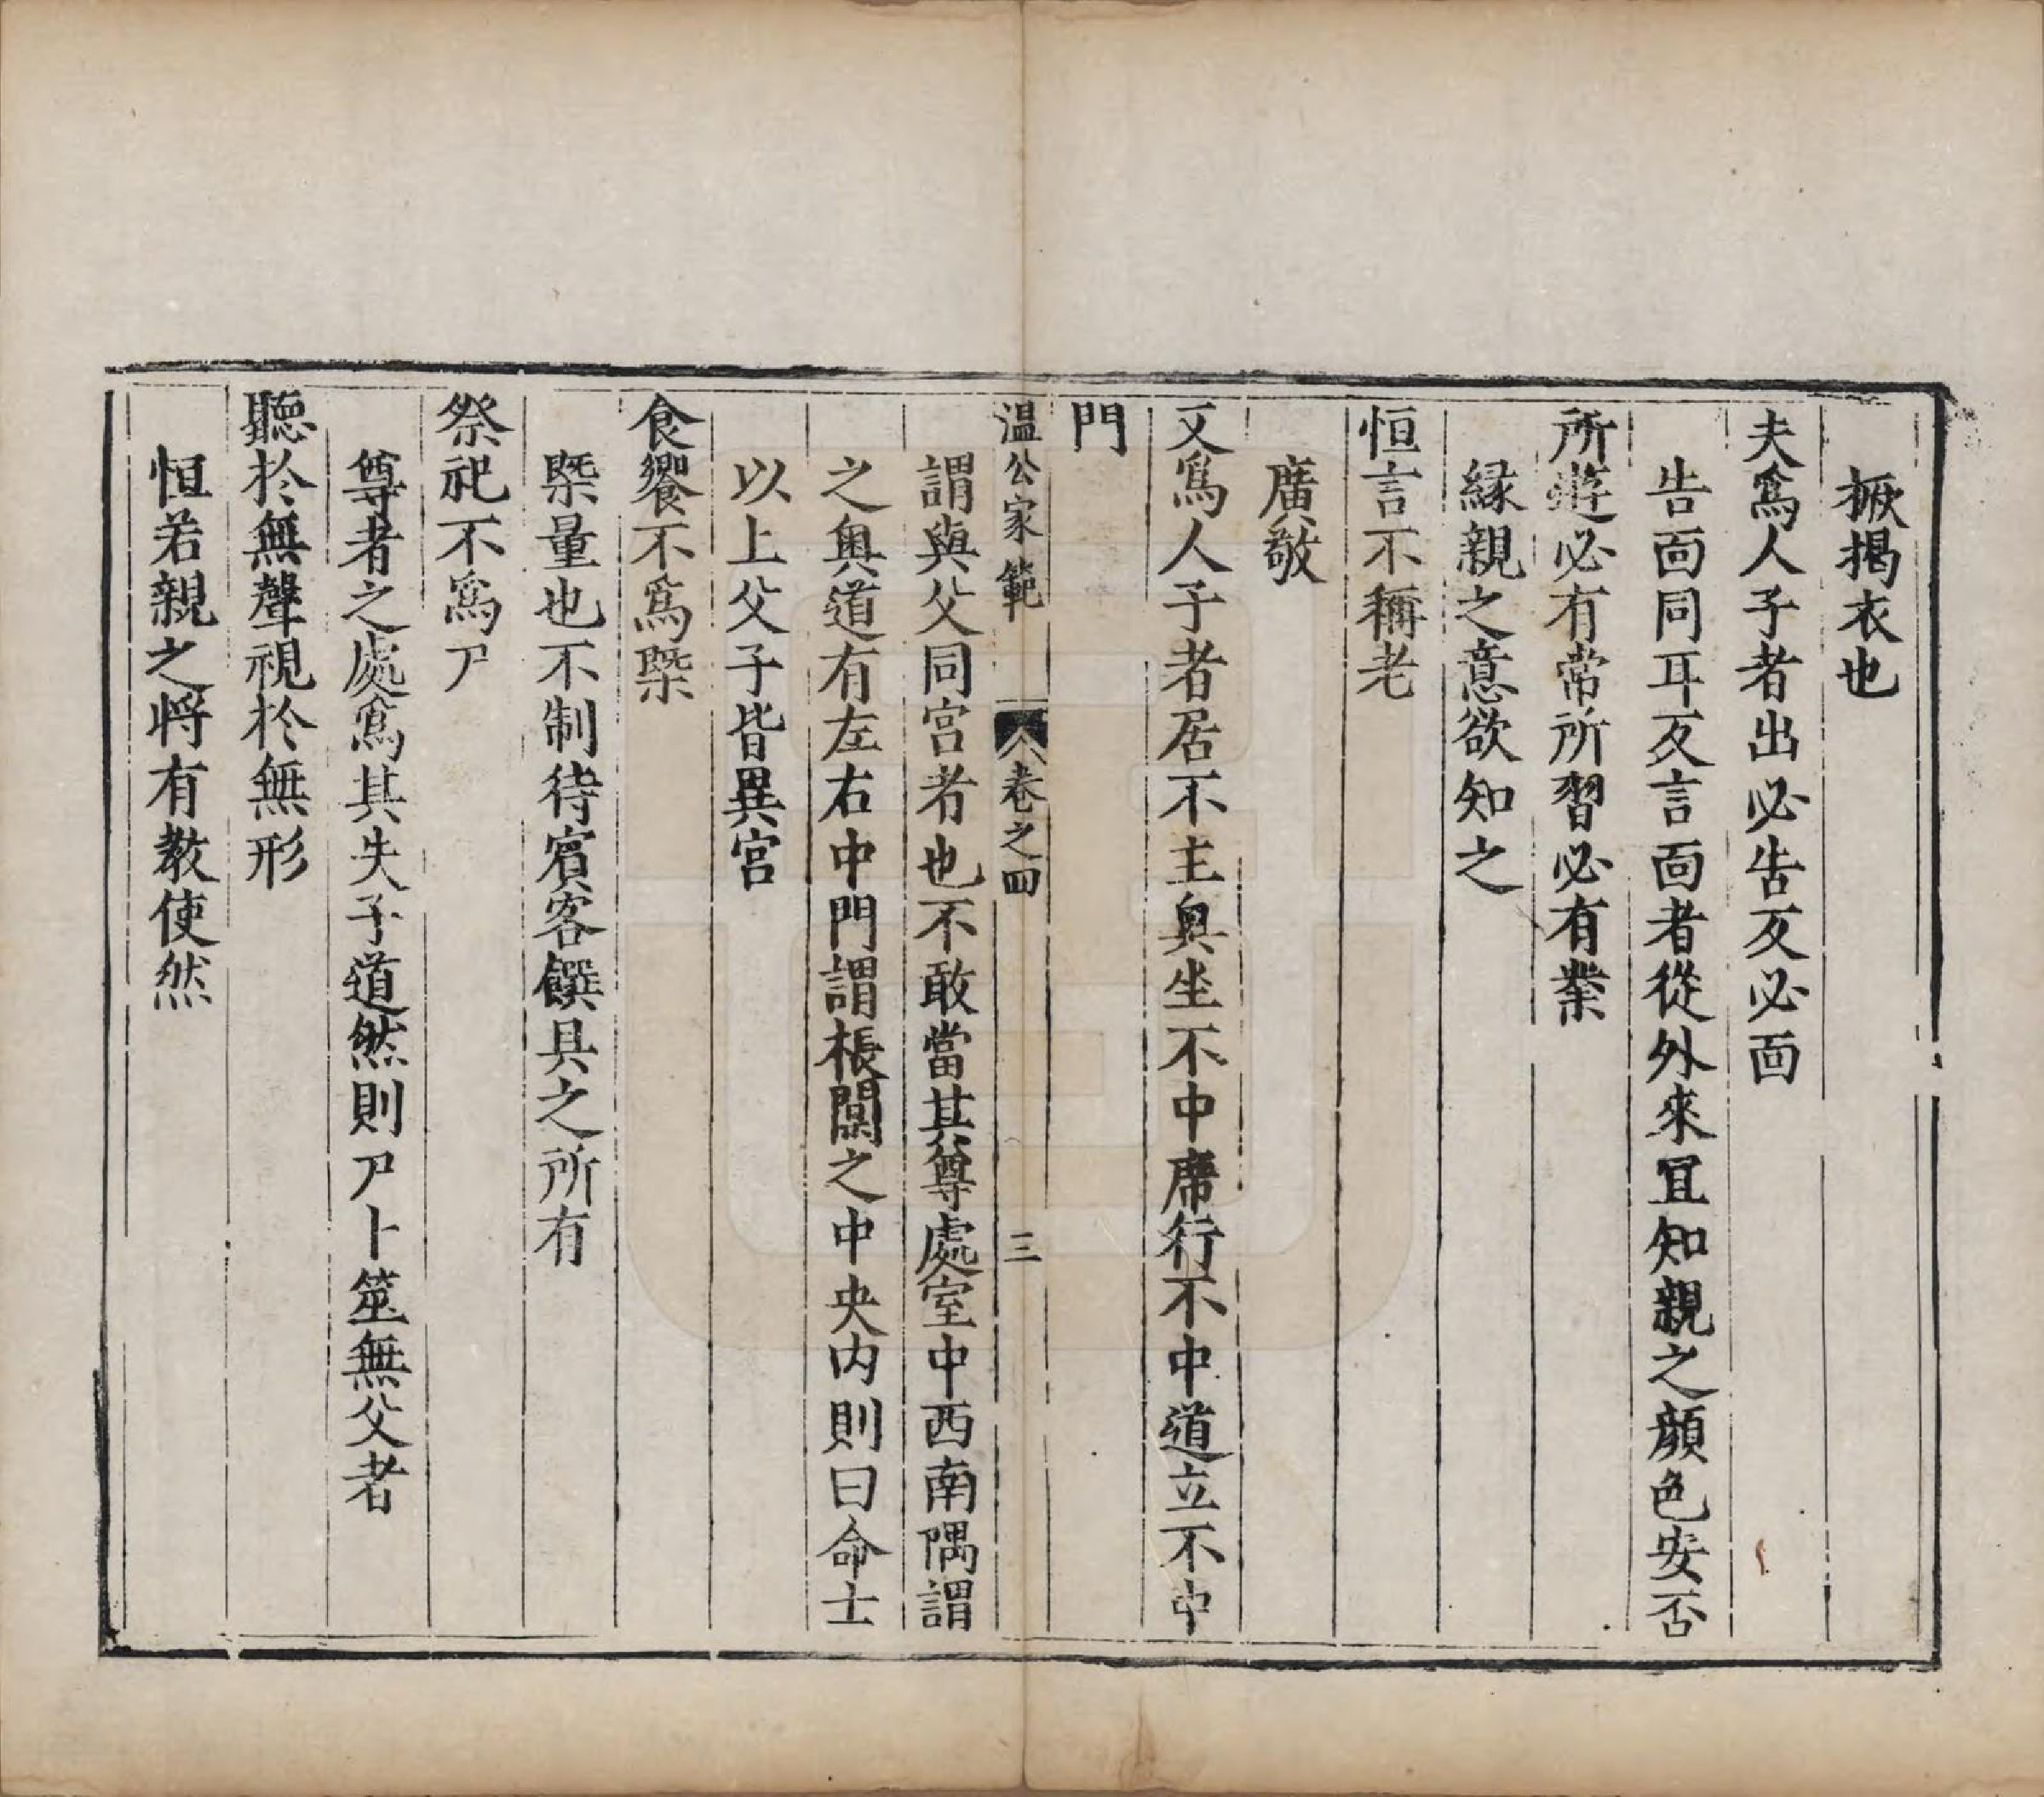 撅揭衣也
夫為人子者出必告反必面
告面同耳反言面者從外來宜知親之顔色安否
所遊必有常所習必有業
緣親之意欲知之
恒言不稱老
廣敬
又為人子者居不主奧坐不中席行不中道立不中
門
温公家範 卷之四 三
謂與父同宫者也不敢當其尊處室中西南隅謂
之奧道有左右中門謂棖闑之中央内則曰命士
以上父子皆異宫
食饗不為槩
槩量也不制待賓客饌具之所有
祭祀不為尸
尊者之處為其失子道然則尸卜筮無父者
聽於無聲視於無形
恒若親之將有教使然